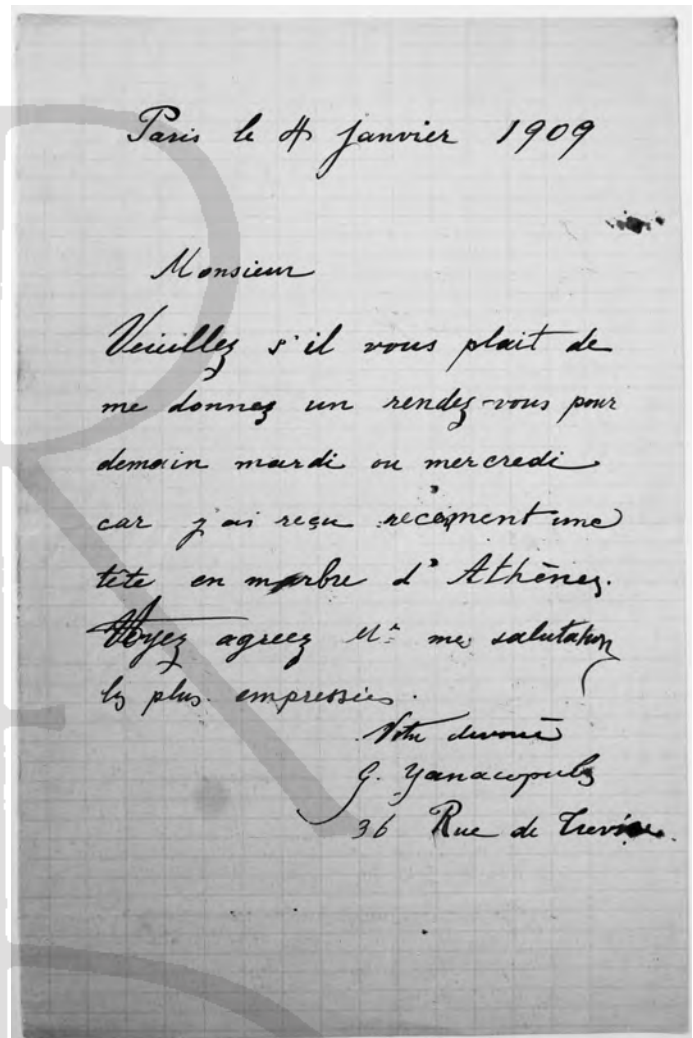 Paris le 4 Janvier 1909
Monsieur
Veuillez s'il vous plait de
me donnez un rendez-vous pour
demain mardi ou mercredi
car j'ai reçu recement une
tête en marbre d'Athènes.
agreez Mr mes salutations
les plus empressées.
Votre devoué
G. Yanacopulos
36 Rue de Trevise.